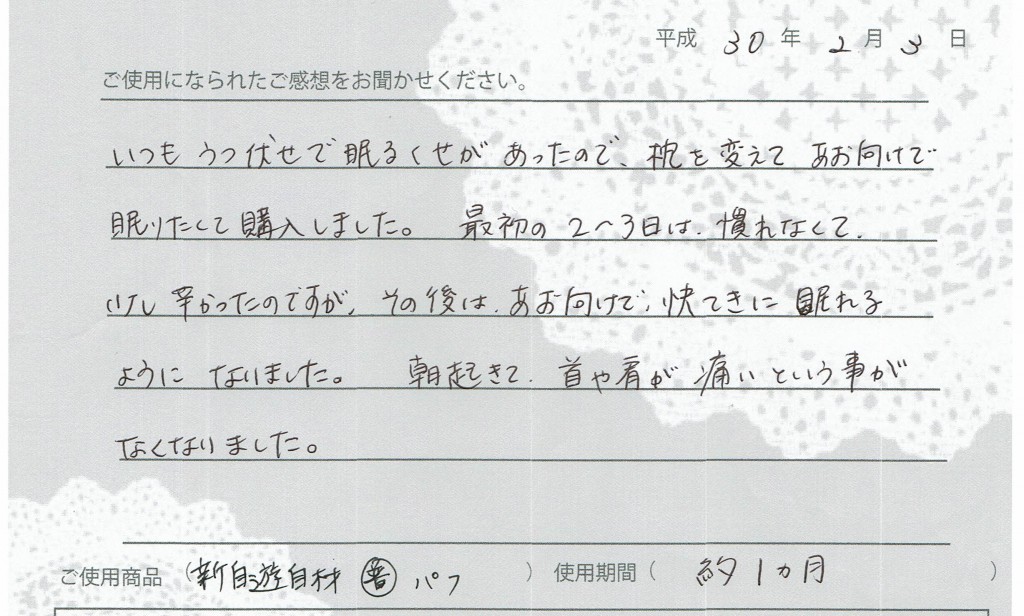 平成 30 年 2 月 3 日
ご使用になられたご感想をお聞かせください。
いつも うつ伏せで 眠るくせが あったので、枕を変えて あお向けで
眠りたくて購入しました。 最初の2～3日は、慣れなくて、
少し辛かったのですが、その後は、あお向けで、快てきに 眠れる
ように なりました。 朝起きて、首や肩が 痛いという事が
なくなりました。
ご使用商品 (新自遊自材 パフ ) 使用期間 ( 約1ヵ月 )